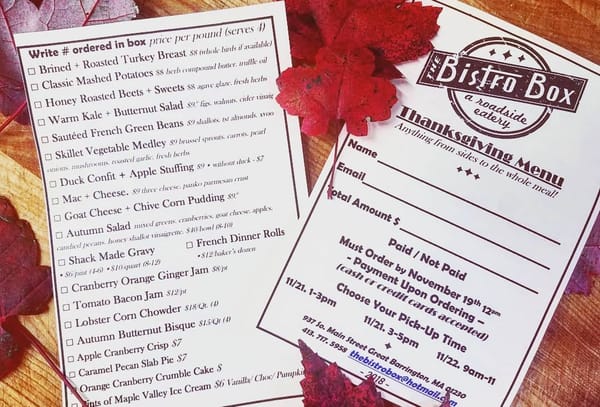 Write # ordered in box price per pound (serves 4)
Brined + Roasted Turkey Breast $8 (whole birds if available)
Classic Mashed Potatoes $8 herb compound butter, truffle oil
Honey Roasted Beets + Sweets $8 agave glaze, fresh herbs
Warm Kale + Butternut Salad $9.° figs, walnuts, cider vinaig
Sautéed French Green Beans $9 shallots, to almonds, evoo
Skillet Vegetable Medley $9 brussel sprouts, carrots, pearl
onions, mushrooms, roasted garlic, fresh herbs
Duck Confit + Apple Stuffing $9 • without duck - $7
Mac + Cheese. $9 three cheese, panko parmesan crust
Goat Cheese + Chive Corn Pudding $9.°
Autumn Salad mixed greens, cranberries, goat cheese, apples,
candied pecans, honey shallot vinaigrette. $40 bowl (8-10)
Shack Made Gravy
• $6 pint (4-6) • $10 quart (8-12)
French Dinner Rolls
• $12 baker's dozen
Cranberry Orange Ginger Jam $8/pt
Tomato Bacon Jam $12/pt
Lobster Corn Chowder $18/Qt. (4)
Autumn Butternut Bisque $15/Qt (4)
Apple Cranberry Crisp $7
Caramel Pecan Slab Pie $7
Orange Cranberry Crumble Cake $
Pints of Maple Valley Ice Cream $6 Vanilla/ Choc/ Pumpkin
THE
Bistro Box
a roadside
eatery
Thanksgiving Menu
Anything from sides to the whole meal!
Name
Email
Total Amount $
Paid / Not Paid
Must Order by November 19th 12pm
- Payment Upon Ordering –
(cash or credit cards accepted)
Choose Your Pick-Up Time
11/21. 1-3pm 11/21. 3-5pm 11/22. 9am-11
937 So. Main Street Great Barrington, MA 01230
413. 717. 5958 thebistrobox@hotmail.com
- 2018 -